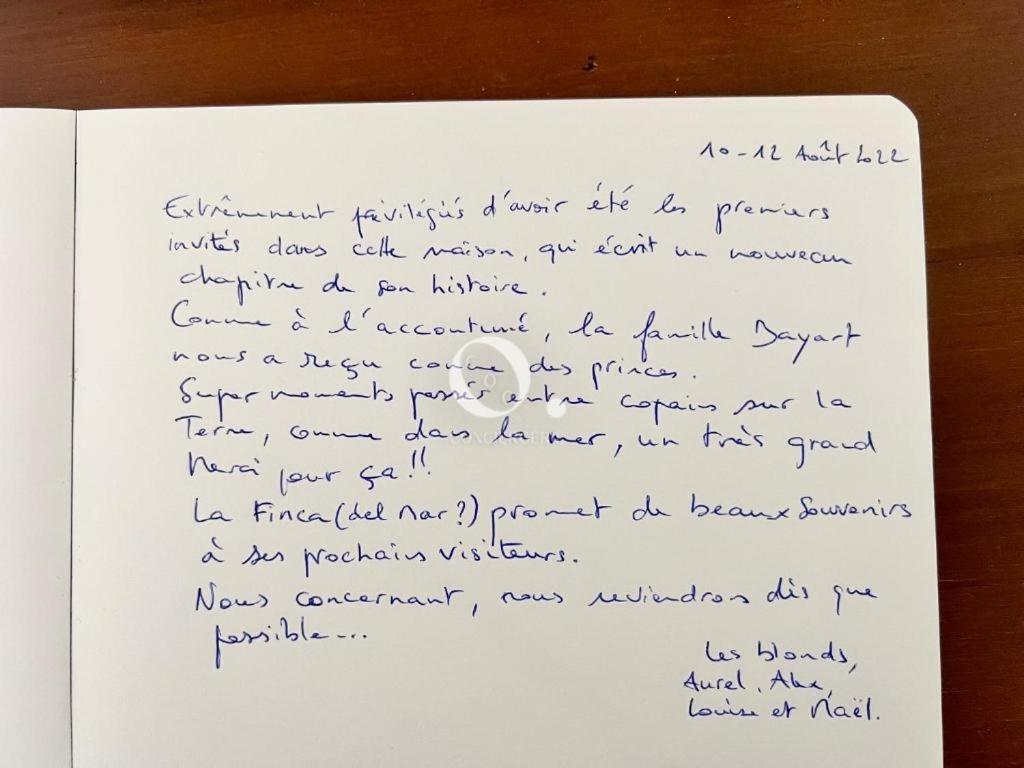 10-12 Août 2022
Extrêmement privilégiés d'avoir été les premiers
invités dans cette maison, qui écrit un nouveau
chapitre de son histoire.
Comme à l'accoutumé, la famille Bayart
nous a reçu comme des princes.
Super moments passés entre copains sur la
Terre, comme dans la mer, un très grand
Merci pour ça!!
La Finca (del Mar?) promet de beaux souvenirs
à ses prochains visiteurs.
Nous concernant, nous reviendrons dès que
possible...
Les blonds,
Aurel, Alex,
Louise et Naël.
CONCIERGERIE